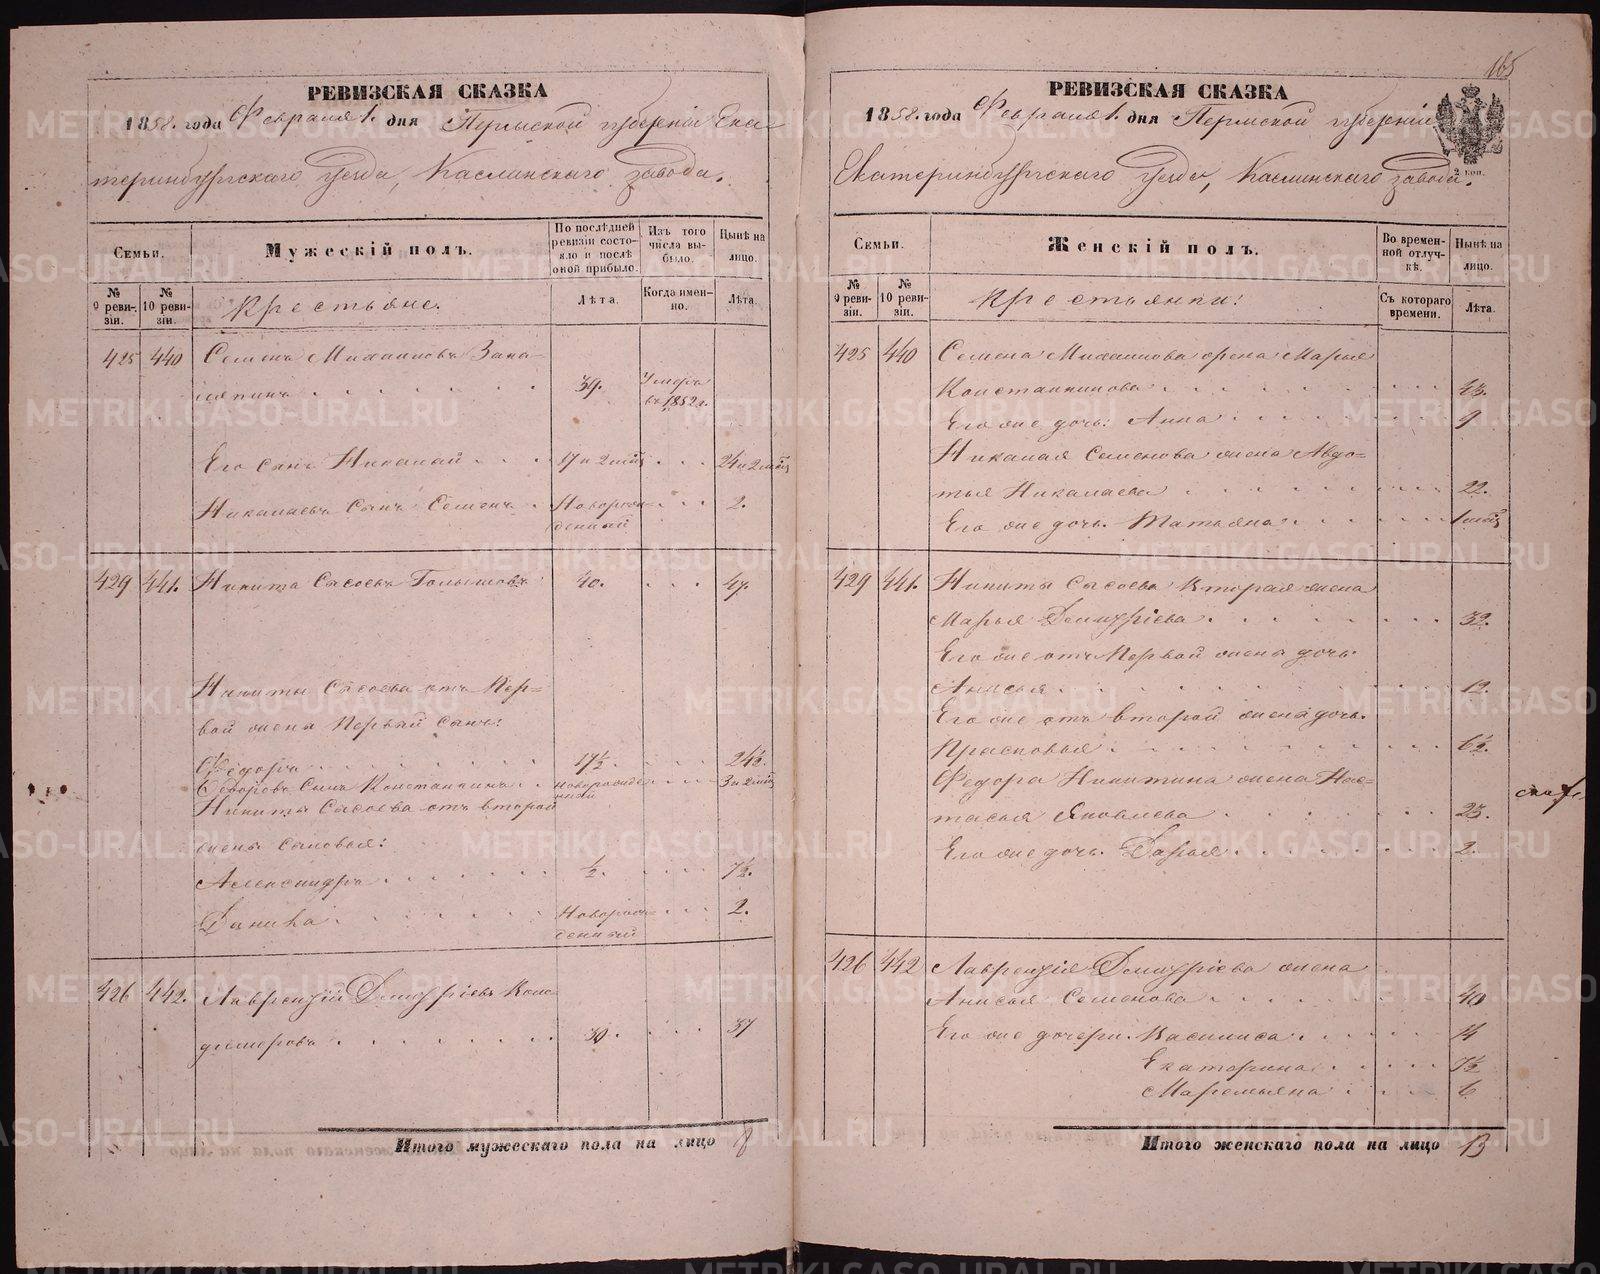 РЕВИЗСКАЯ СКАЗКА
1858. года Февраля 1. дня Пермской губерніи Ека-
теринбургскаго уезда, Каслинскаго завода.
Семьи.
Мужескій полъ.
По послѣдней ревизіи состояло и послѣ оной прибыло.
Изъ того числа выбыло.
Нынѣ на лицо.
№ 9 ревизіи.
№ 10 ревизіи.
Крестьяне.
Лѣта.
Когда именно.
Лѣта.
425 440 Семенъ Михаиловъ Зака-
ляпинъ 39. Умеръ въ 1852 г.
Его сынъ Николай 17 и 2 мѣс 24 и 2 мѣс
Николаевъ сынъ Семенъ Новорожденный 2.
429 441. Никита Сысоевъ Голышовъ 40. 47.
Никиты Сысоева отъ пер-
вой жены первый сынъ:
Федоръ 17½ 24½.
Федоровъ сынъ Константинъ новорожденный 3 и 2 мѣс
Никиты Сысоева отъ второй
жены сыновья:
Александръ ½. 7½.
Данила Новорожденный 2.
426 442. Лаврентій Дмитріевъ
30. 37
Итого мужескаго пола на лицо 8
165
РЕВИЗСКАЯ СКАЗКА
1858. года Февраля 1. дня Пермской губерніи
Екатеринбургскаго уезда, Каслинскаго завода.
2 коп.
Семьи.
Женскій полъ.
Во временной отлучкѣ.
Нынѣ на лицо.
№ 9 ревизіи.
№ 10 ревизіи.
Крестьянки:
Съ котораго времени.
Лѣта.
425 440 Семена Михаилова жена Марья
Константинова 43.
Его же дочь: Анна 9
Николая Семенова жена Авдо-
тья Николаева 22.
Его же дочь. Татьяна 1 мѣс
429 441. Никиты Сысоева вторая жена
Марья Дмитріева 32.
Его же отъ первой жены дочь
Анисья 12.
Его же отъ второй жены дочь.
Прасковья 6½.
Федора Никитина жена Нас-
тасья Яковлева 23.
Его же дочь. Дарья 2.
426 442 Лаврентія Дмитріева жена
Анисья Семенова 40
Его же дочери. Василиса 14
Екатерина 7½
Маремьяна 6
Итого женскаго пола на лицо 13
METRIKI.GASO-URAL.RU